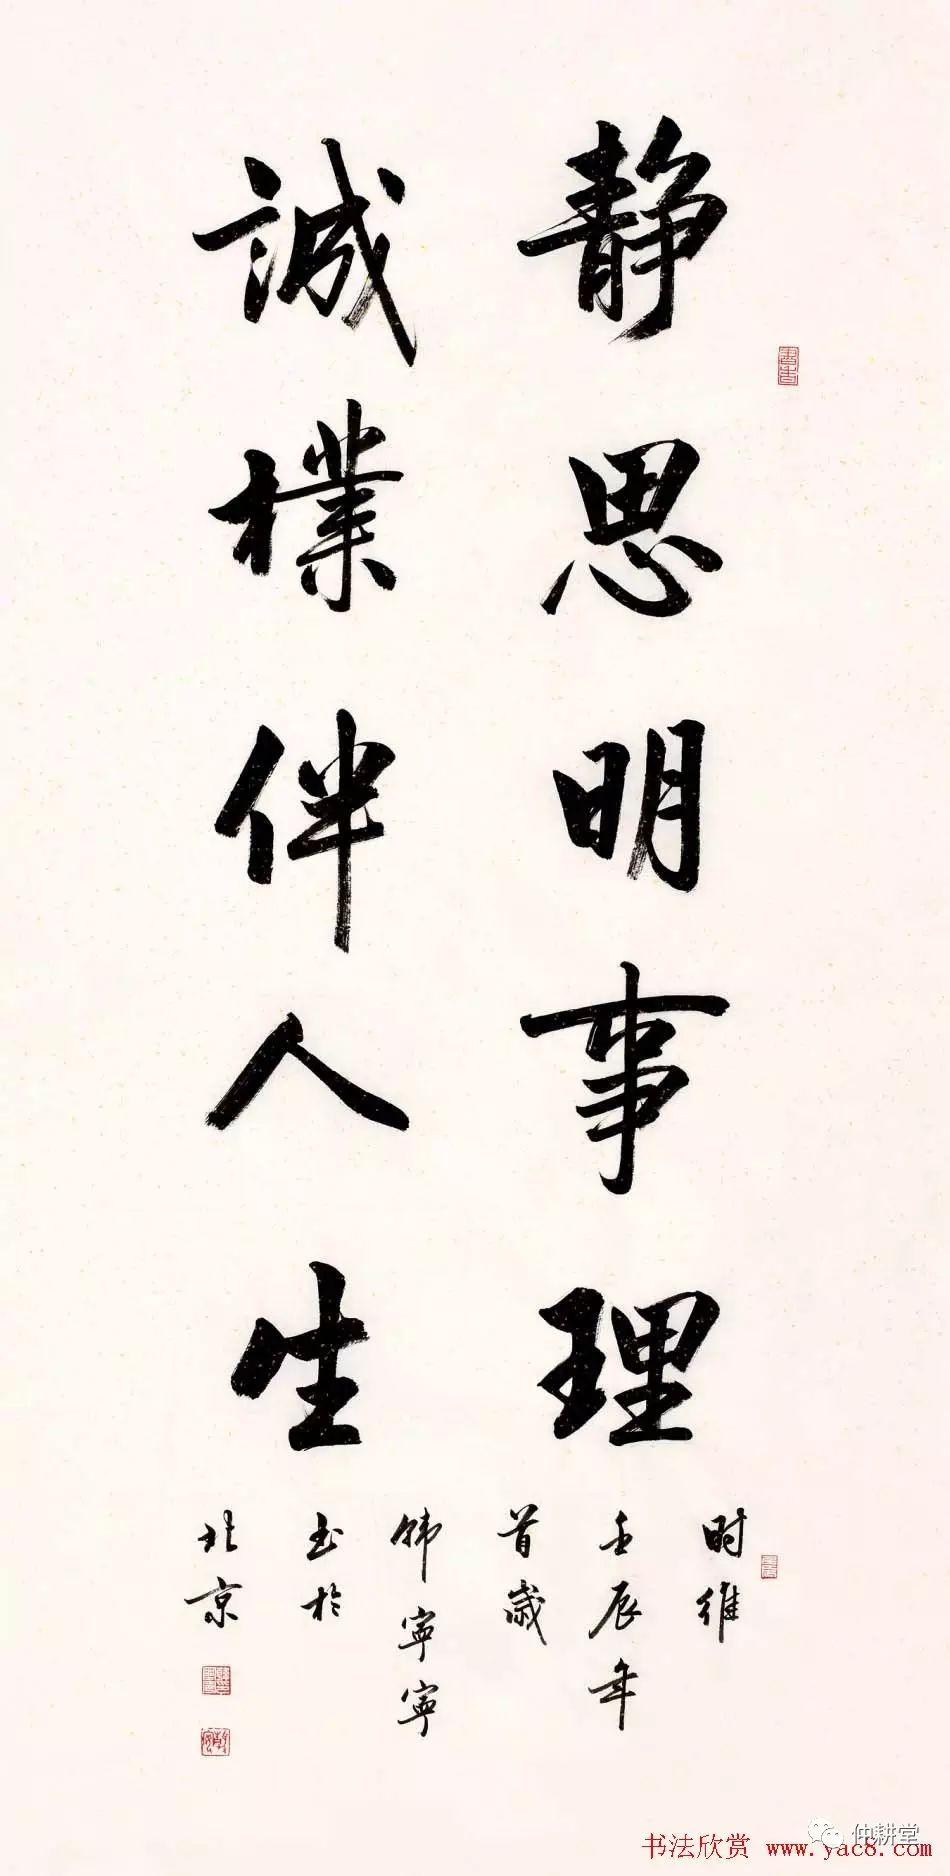 静思明事理
誠樸伴人生
时维
壬辰年
首歲
韩寧寧
书於
北京
仲耕堂
书法欣赏 www.yac8.com